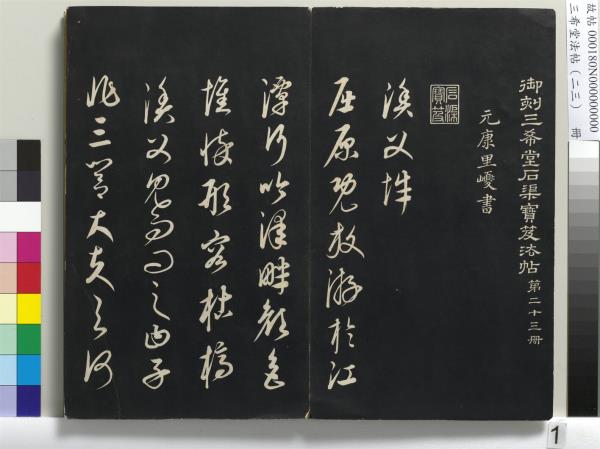 御刻三希堂石渠寶笈法帖 第二十三冊
元康里巙書
石渠寶笈
漁父辭
屈原既放游於江
潭行吟澤畔顏色
憔悴形容枯槁
漁父見而問之曰子
非三閭大夫與何
故帖 000180N000000000
三希堂法帖(二三) 冊
1